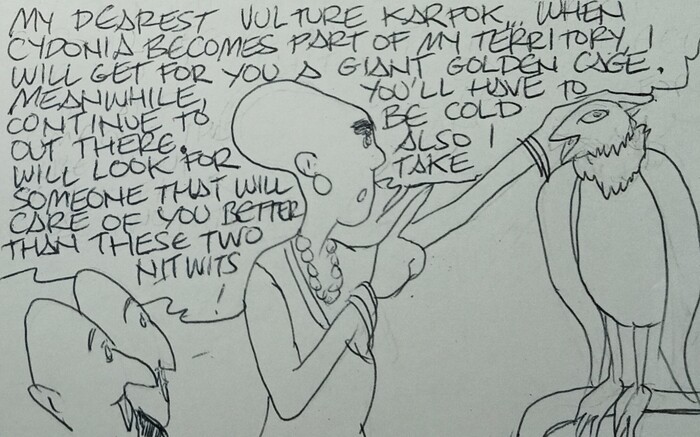 MY DEAREST VULTURE KARPOK... WHEN
CYDONIA BECOMES PART OF MY TERRITORY, I
WILL GET FOR YOU A GIANT GOLDEN CAGE.
MEANWHILE, YOU'LL HAVE TO
CONTINUE TO BE COLD
OUT THERE. ALSO I
WILL LOOK FOR
SOMEONE THAT WILL TAKE
CARE OF YOU BETTER
THAN THESE TWO
NITWITS!